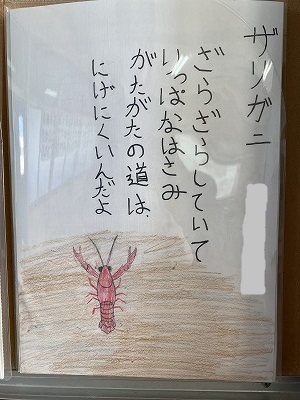 ザリガニ
ざらざらしていて
りっぱなはさみ
がたがたの道は、
にげにくいんだよ